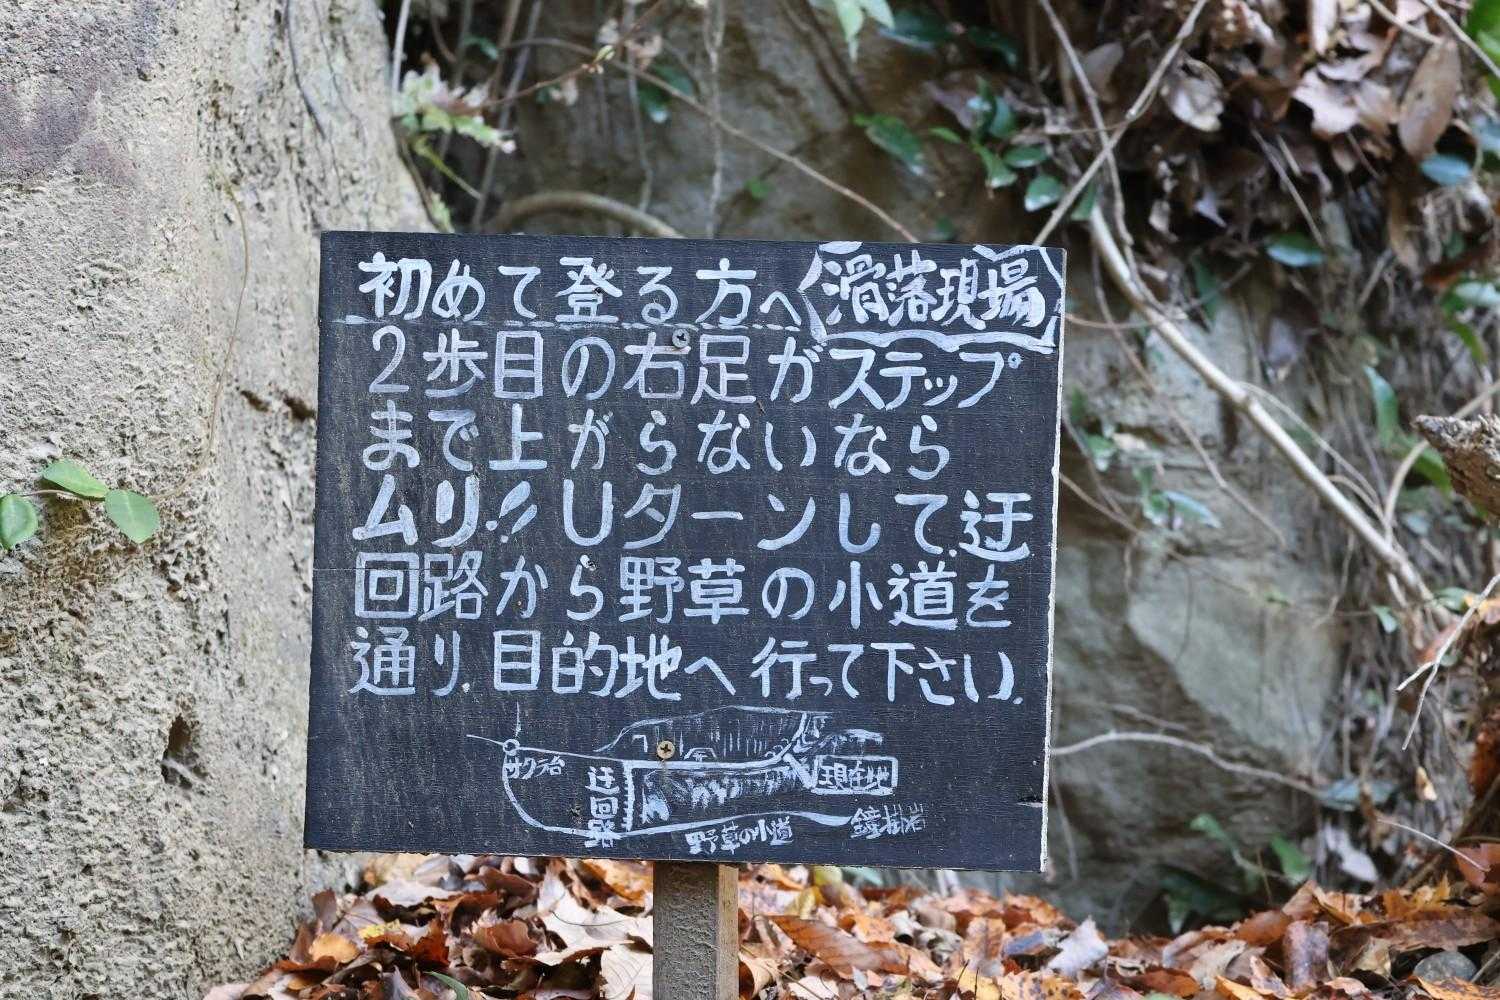 初めて登る方へ 滑落現場
2歩目の右足がステップ
まで上がらないなら
ムリ!!Uターンして、迂
回路から野草の小道を
通り、目的地へ行って下さい。
サクラ台
迂回路
現在地
野草の小道
鏡掛岩